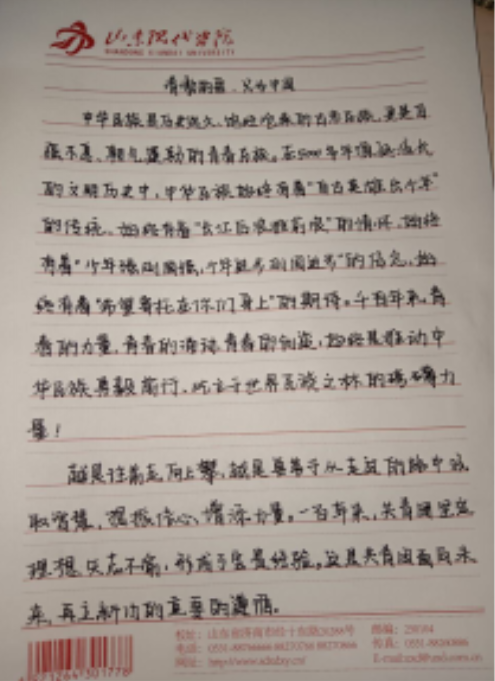 山东现代学院
SHANDONG XIANDAI UNIVERSITY
青春的
中华民族是历史悠久、饱经沧桑的古老民族,更是自
强不息、朝气蓬勃的青春民族。在5000多年源远流长
的文明历史中,中华民族始终有着"自古英雄出少年"
的传统,始终有着"长江后浪推前浪"的情怀,始终
有着"少年强则国强,少年进步则国进步"的信念,始
终有着"希望寄托在你们身上"的期待。千百年来,青
春的力量,青春的涌动,青春的创造,始终是推动中
华民族勇毅前行、屹立于世界民族之林的磅礴力
量!
越是往前走、向上攀,越是要善于从走过的路中汲
取智慧,提振信心,增添力量。一百年来,共青团坚定
理想、矢志不渝,形成了宝贵经验。这是共青团面向未
来,再立新功的重要的遵循。
校址:山东省济南市经十东路 号 邮编:250104
电话:0531- 传真:0531-
网址: E-mail: